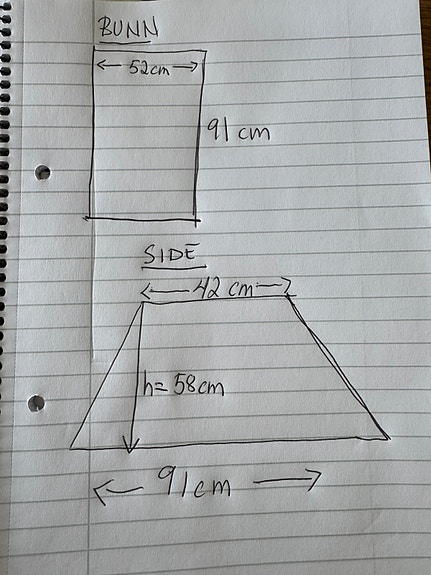 BUNN
52cm
91 cm
SIDE
42 cm
h= 58cm
91cm